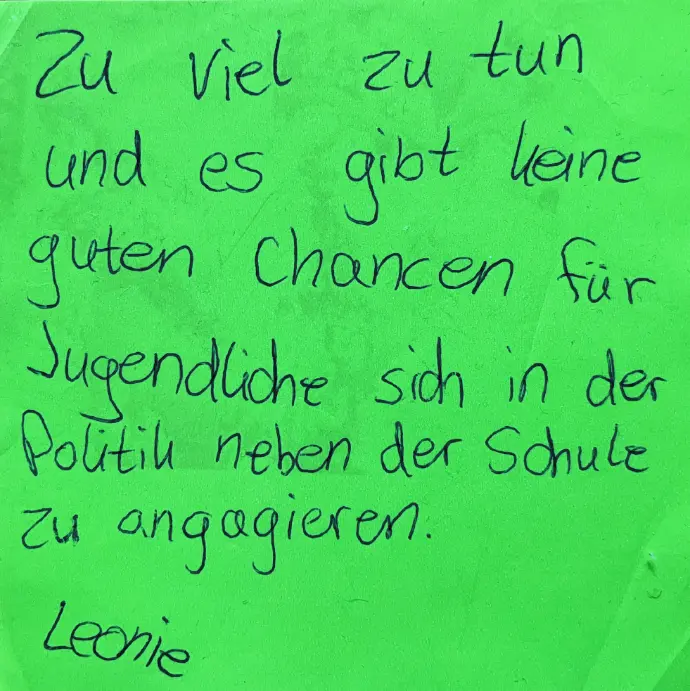 Zu viel zu tun
und es gibt keine
guten Chancen für
Jugendliche sich in der
Politik neben der Schule
zu angagieren.
Leonie